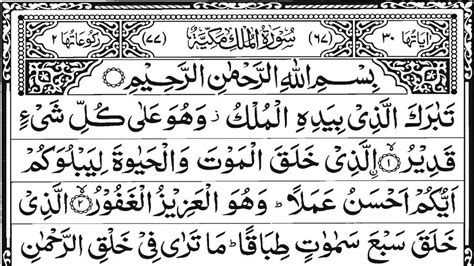 اٰیاتھا ۳۰ (۶۷) سُوْرَةُ الْمُلْكِ مَكِّیَّةٌ (۷۷) رکوعاتھا ۲
بِسْمِ اللّٰهِ الرَّحْمٰنِ الرَّحِیْمِ
تَبٰرَكَ الَّذِیْ بِیَدِهِ الْمُلْكُ ز وَهُوَ عَلٰى كُلِّ شَیْءٍ
قَدِیْرُ ۙ﴿۱﴾ الَّذِیْ خَلَقَ الْمَوْتَ وَالْحَیٰوةَ لِیَبْلُوَكُمْ
اَیُّكُمْ اَحْسَنُ عَمَلًا ؕ وَهُوَ الْعَزِیْزُ الْغَفُوْرُ ۙ﴿۲﴾ الَّذِیْ
خَلَقَ سَبْعَ سَمٰوٰتٍ طِبَاقًا ؕ مَا تَرٰى فِیْ خَلْقِ الرَّحْمٰنِ